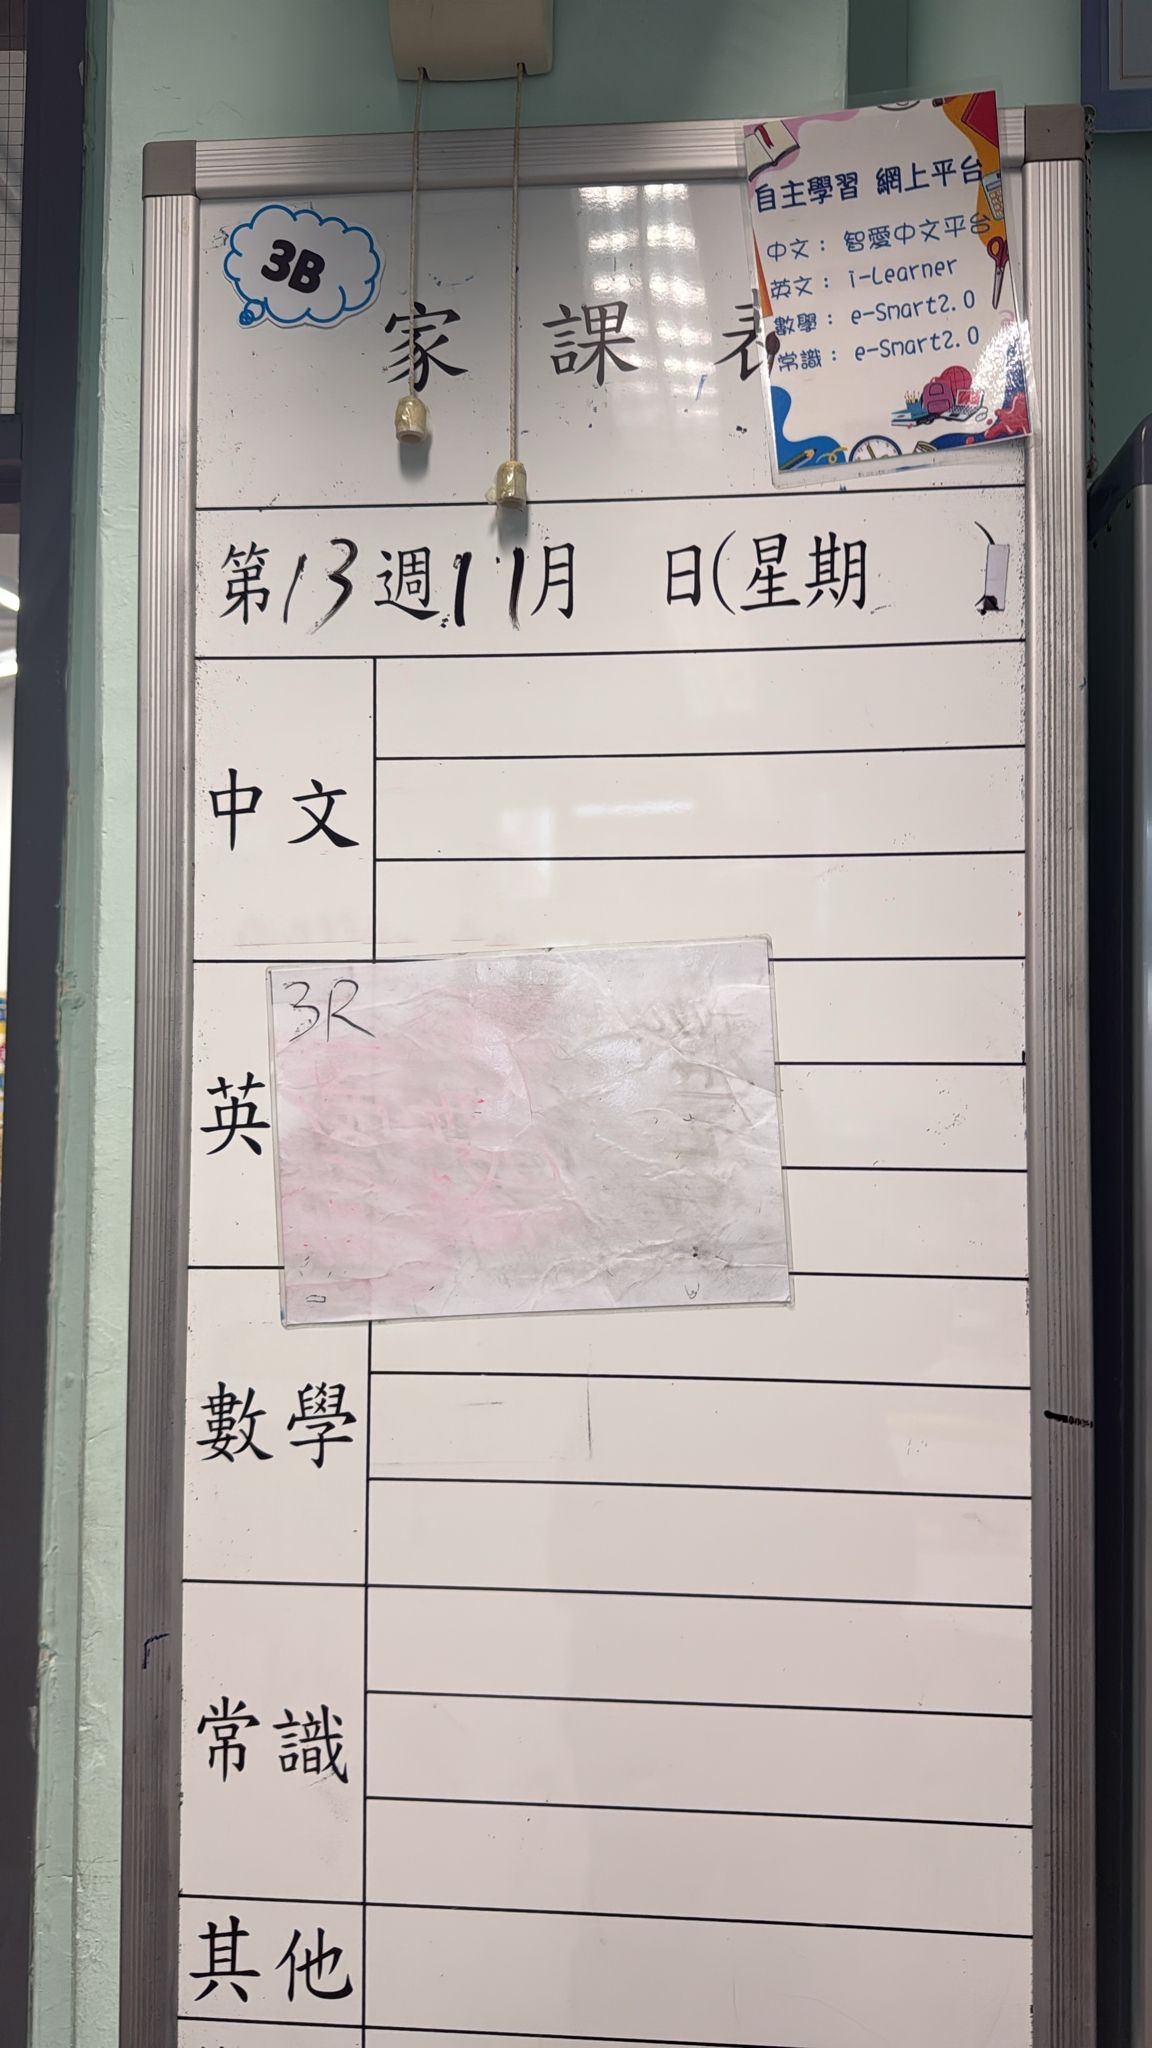 3B
家課表
自主學習 網上平台
中文：智愛中文平台
英文：i-Learner
數學：e-Smart2.0
常識：e-Smart2.0
第13週11月 日(星期 )
中文
英
3R
數學
常識
其他